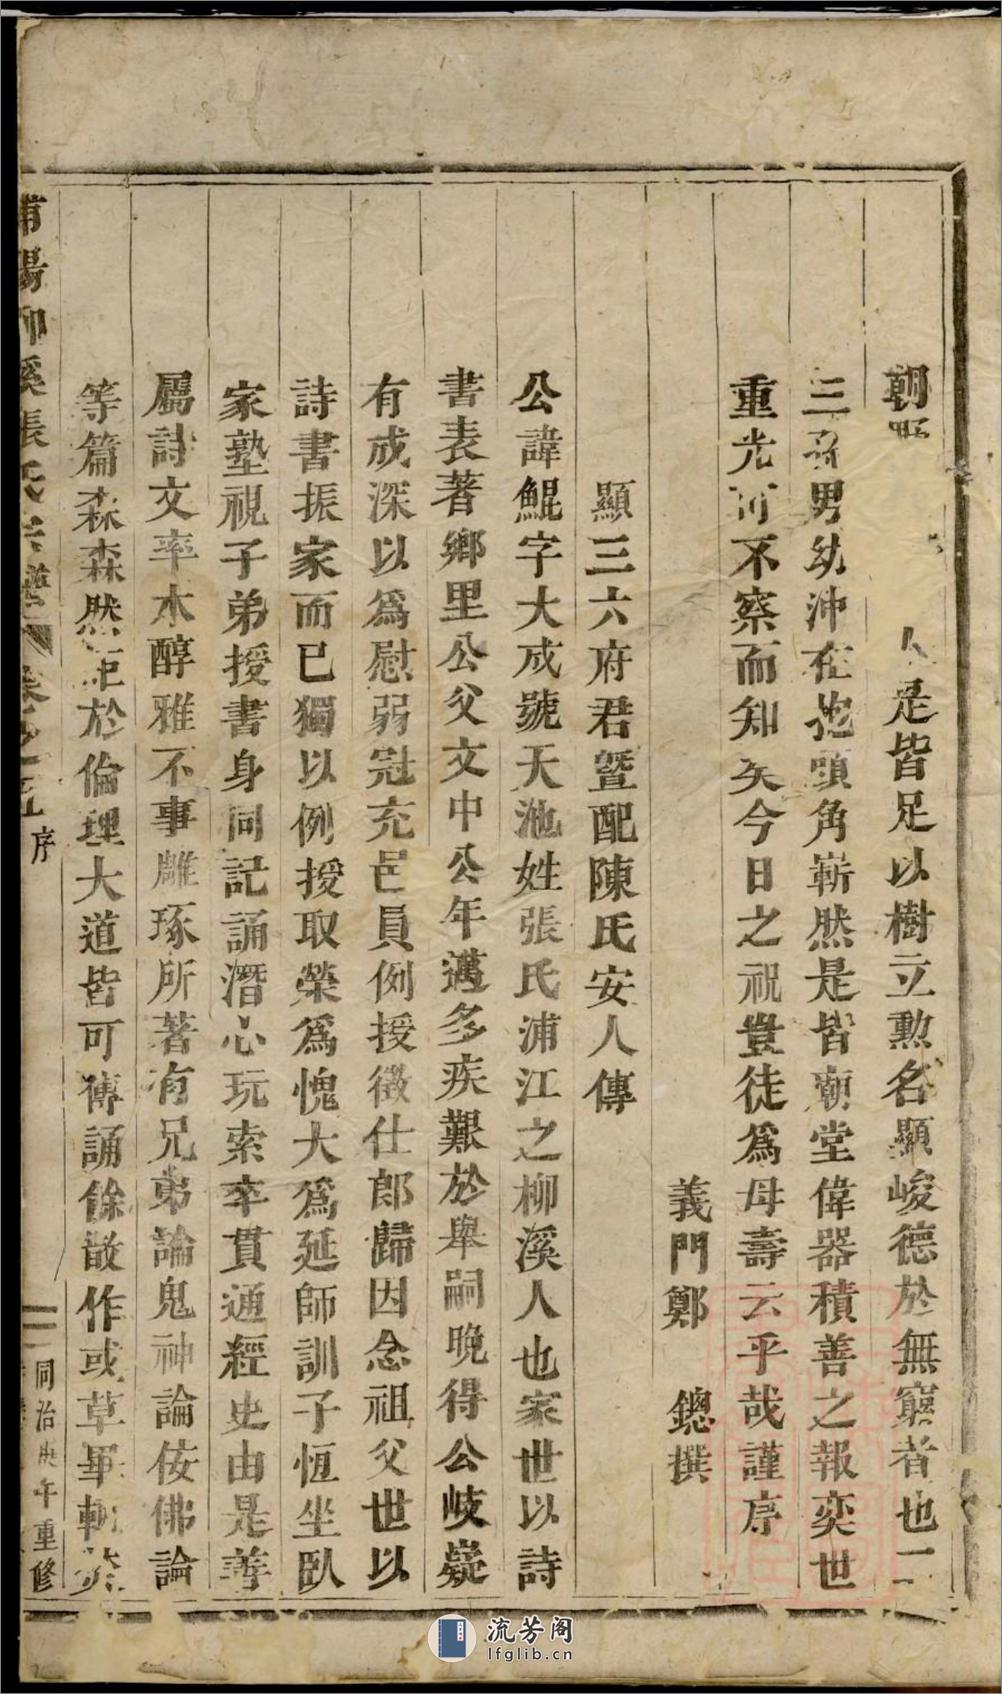 朝野人是皆足以樹立勲名顯峻德於無窮者也一
三孫男幼沖在抱頭角嶄然是皆廟堂偉器積善之報奕世
重光可不察而知矣今日之祝豈徒爲母壽云乎哉謹序
義門鄭　鏓撰
顯三六府君暨配陳氏安人傳
公諱鯤字大成號天池姓張氏浦江之柳溪人也家世以詩
書表著鄉里公父文中公年邁多疾艱於舉嗣晚得公岐嶷
有成深以爲慰弱冠充邑員例授徵仕郎歸因念祖父世以
詩書振家而已獨以例授取榮爲愧大爲延師訓子恆坐臥
家塾視子弟授書身同記誦潛心玩索卒貫通經史由是善
屬詩文率木醇雅不事雕琢所著有兄弟論鬼神論佞佛論
等篇森森然於倫理大道皆可傳誦餘散作或草畢輒
浦陽柳溪張氏宗譜 卷之 序 同治庚午年重修
流芳阁
lfglib.cn